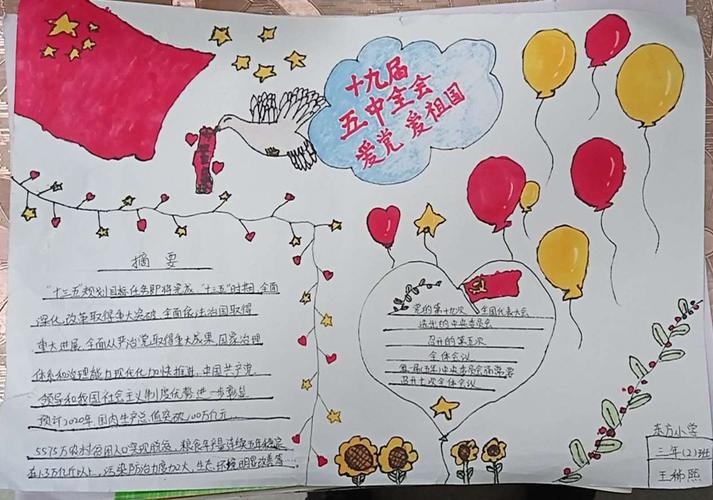 十九届
五中全会
爱党 爱祖国
摘要
"十三五"规划目标任务即将完成,"十三五"时期,全面
深化改革取得重大突破,全面依法治国取得
重大进展,全面从严治党取得重大成果,国家治理
体系和治理能力现代化加快推进,中国共产党
领导和我国社会主义制度优势进一步彰显
预计2020年国内生产总值突破100万亿元
5575万农村贫困人口实现脱贫,粮食年产量连续五年稳定
在1.3万亿斤以上,污染防治力度加大,生态环境明显改善等…
党的第十九次全国代表大会
选出的中央委员会
召开的第五次
全体会议
每一届五年中央委员会
召开七次全体会议
东方小学
三年(2)班
王
熙